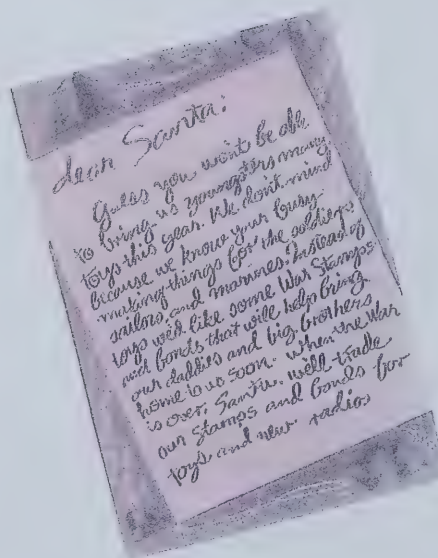 dear Santa:
Guess you won't be able
to bring us youngsters many
toys this year. We don't mind
because we know your busy
making things for the soldiers
sailors, and marines. Instead of
toys we'd like some War Stamps
and bonds that will help bring
our daddies and big brothers
home to us soon. When the War
is over, Santa, we'll trade
our stamps and bonds for
toys and new radios